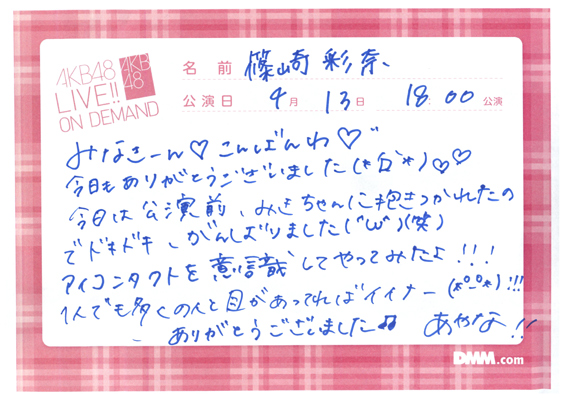 AKB48
LIVE!!
ON DEMAND
AKB
48
名 前 篠崎 彩奈
公演日 4月 13日 18:00 公演
みなさーん♡こんばんわ♡
今日もありがとうございました(*´Д`*)♡♡
今日は公演前、みきちゃんに抱きつかれたの
でドキドキ、がんばりました(´ω`)(笑)
アイコンタクトを意識してやってみたよ!!!
1人でも多くの人と目があってればイイナー(*°_°*)!!!
ありがとうございました♫ あやな!!
DMM.com